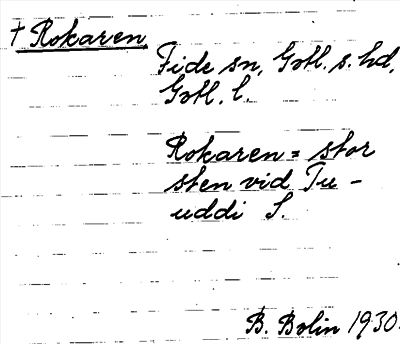 † Rokaren
Fide sn, Gotl. s. hd,
Gotl. l.
Rokaren = stor
sten vid Tu-
uddi S.
B. Bolin 1930.